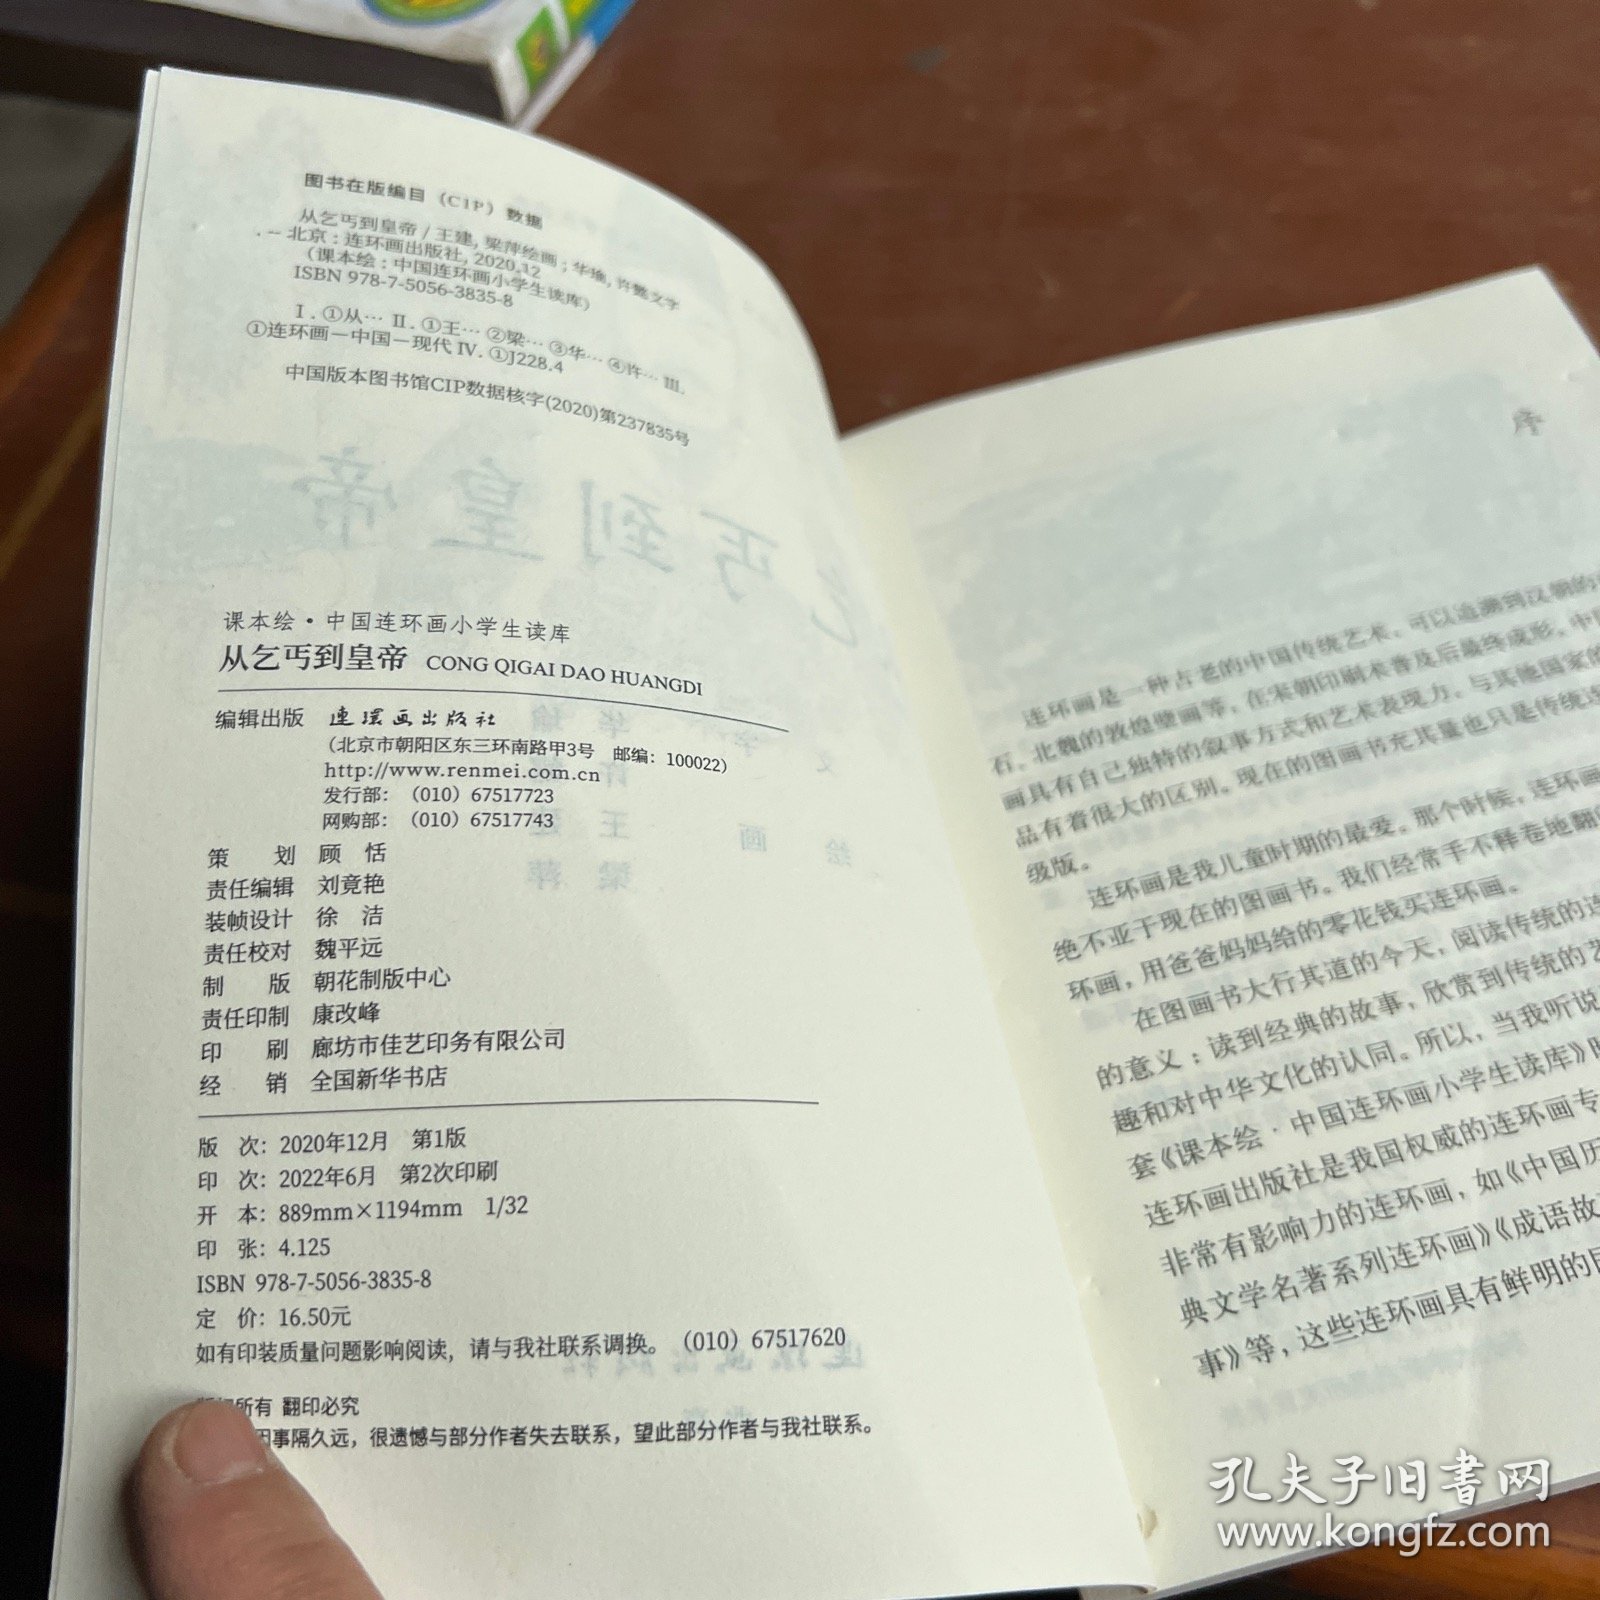 图书在版编目（CIP）数据
从乞丐到皇帝 / 王建, 梁萍绘画 ; 华瑜, 许懋文字
. -- 北京 : 连环画出版社, 2020.12
（课本绘 : 中国连环画小学生读库）
ISBN 978-7-5056-3835-8
Ⅰ . ①从… Ⅱ . ①王… ②梁… ③华… ④许… Ⅲ.
①连环画－中国－现代 Ⅳ. ①J228.4
中国版本图书馆CIP数据核字(2020)第237835号
课本绘·中国连环画小学生读库
从乞丐到皇帝 CONG QIGAI DAO HUANGDI
编辑出版 连环画出版社
（北京市朝阳区东三环南路甲3号 邮编：100022）
http://www.renmei.com.cn
发行部：（010）67517723
网购部：（010）67517743
策 划 顾 恬
责任编辑 刘竟艳
装帧设计 徐 洁
责任校对 魏平远
制 版 朝花制版中心
责任印制 康改峰
印 刷 廊坊市佳艺印务有限公司
经 销 全国新华书店
版 次：2020年12月 第1版
印 次：2022年6月 第2次印刷
开 本：889mm×1194mm 1/32
印 张：4.125
ISBN 978-7-5056-3835-8
定 价：16.50元
如有印装质量问题影响阅读，请与我社联系调换。（010）67517620
所有 翻印必究
因事隔久远，很遗憾与部分作者失去联系，望此部分作者与我社联系。
序
连环画是一种古老的中国传统艺术，可以追溯到汉朝的
石、北魏的敦煌壁画等，在宋朝印刷术普及后最终成形。中国
画具有自己独特的叙事方式和艺术表现力，与其他国家的
品有着很大的区别。现在的图画书充其量也只是传统连
级版。
连环画是我儿童时期的最爱。那个时候，连环画
绝不亚于现在的图画书。我们经常手不释卷地翻
环画，用爸爸妈妈给的零花钱买连环画。
在图画书大行其道的今天，阅读传统的连
的意义：读到经典的故事，欣赏到传统的艺
趣和对中华文化的认同。所以，当我听说
套《课本绘·中国连环画小学生读库》时
连环画出版社是我国权威的连环画专
非常有影响力的连环画，如《中国历
典文学名著系列连环画》《成语故
事》等，这些连环画具有鲜明的民
孔夫子旧书网
www.kongfz.com